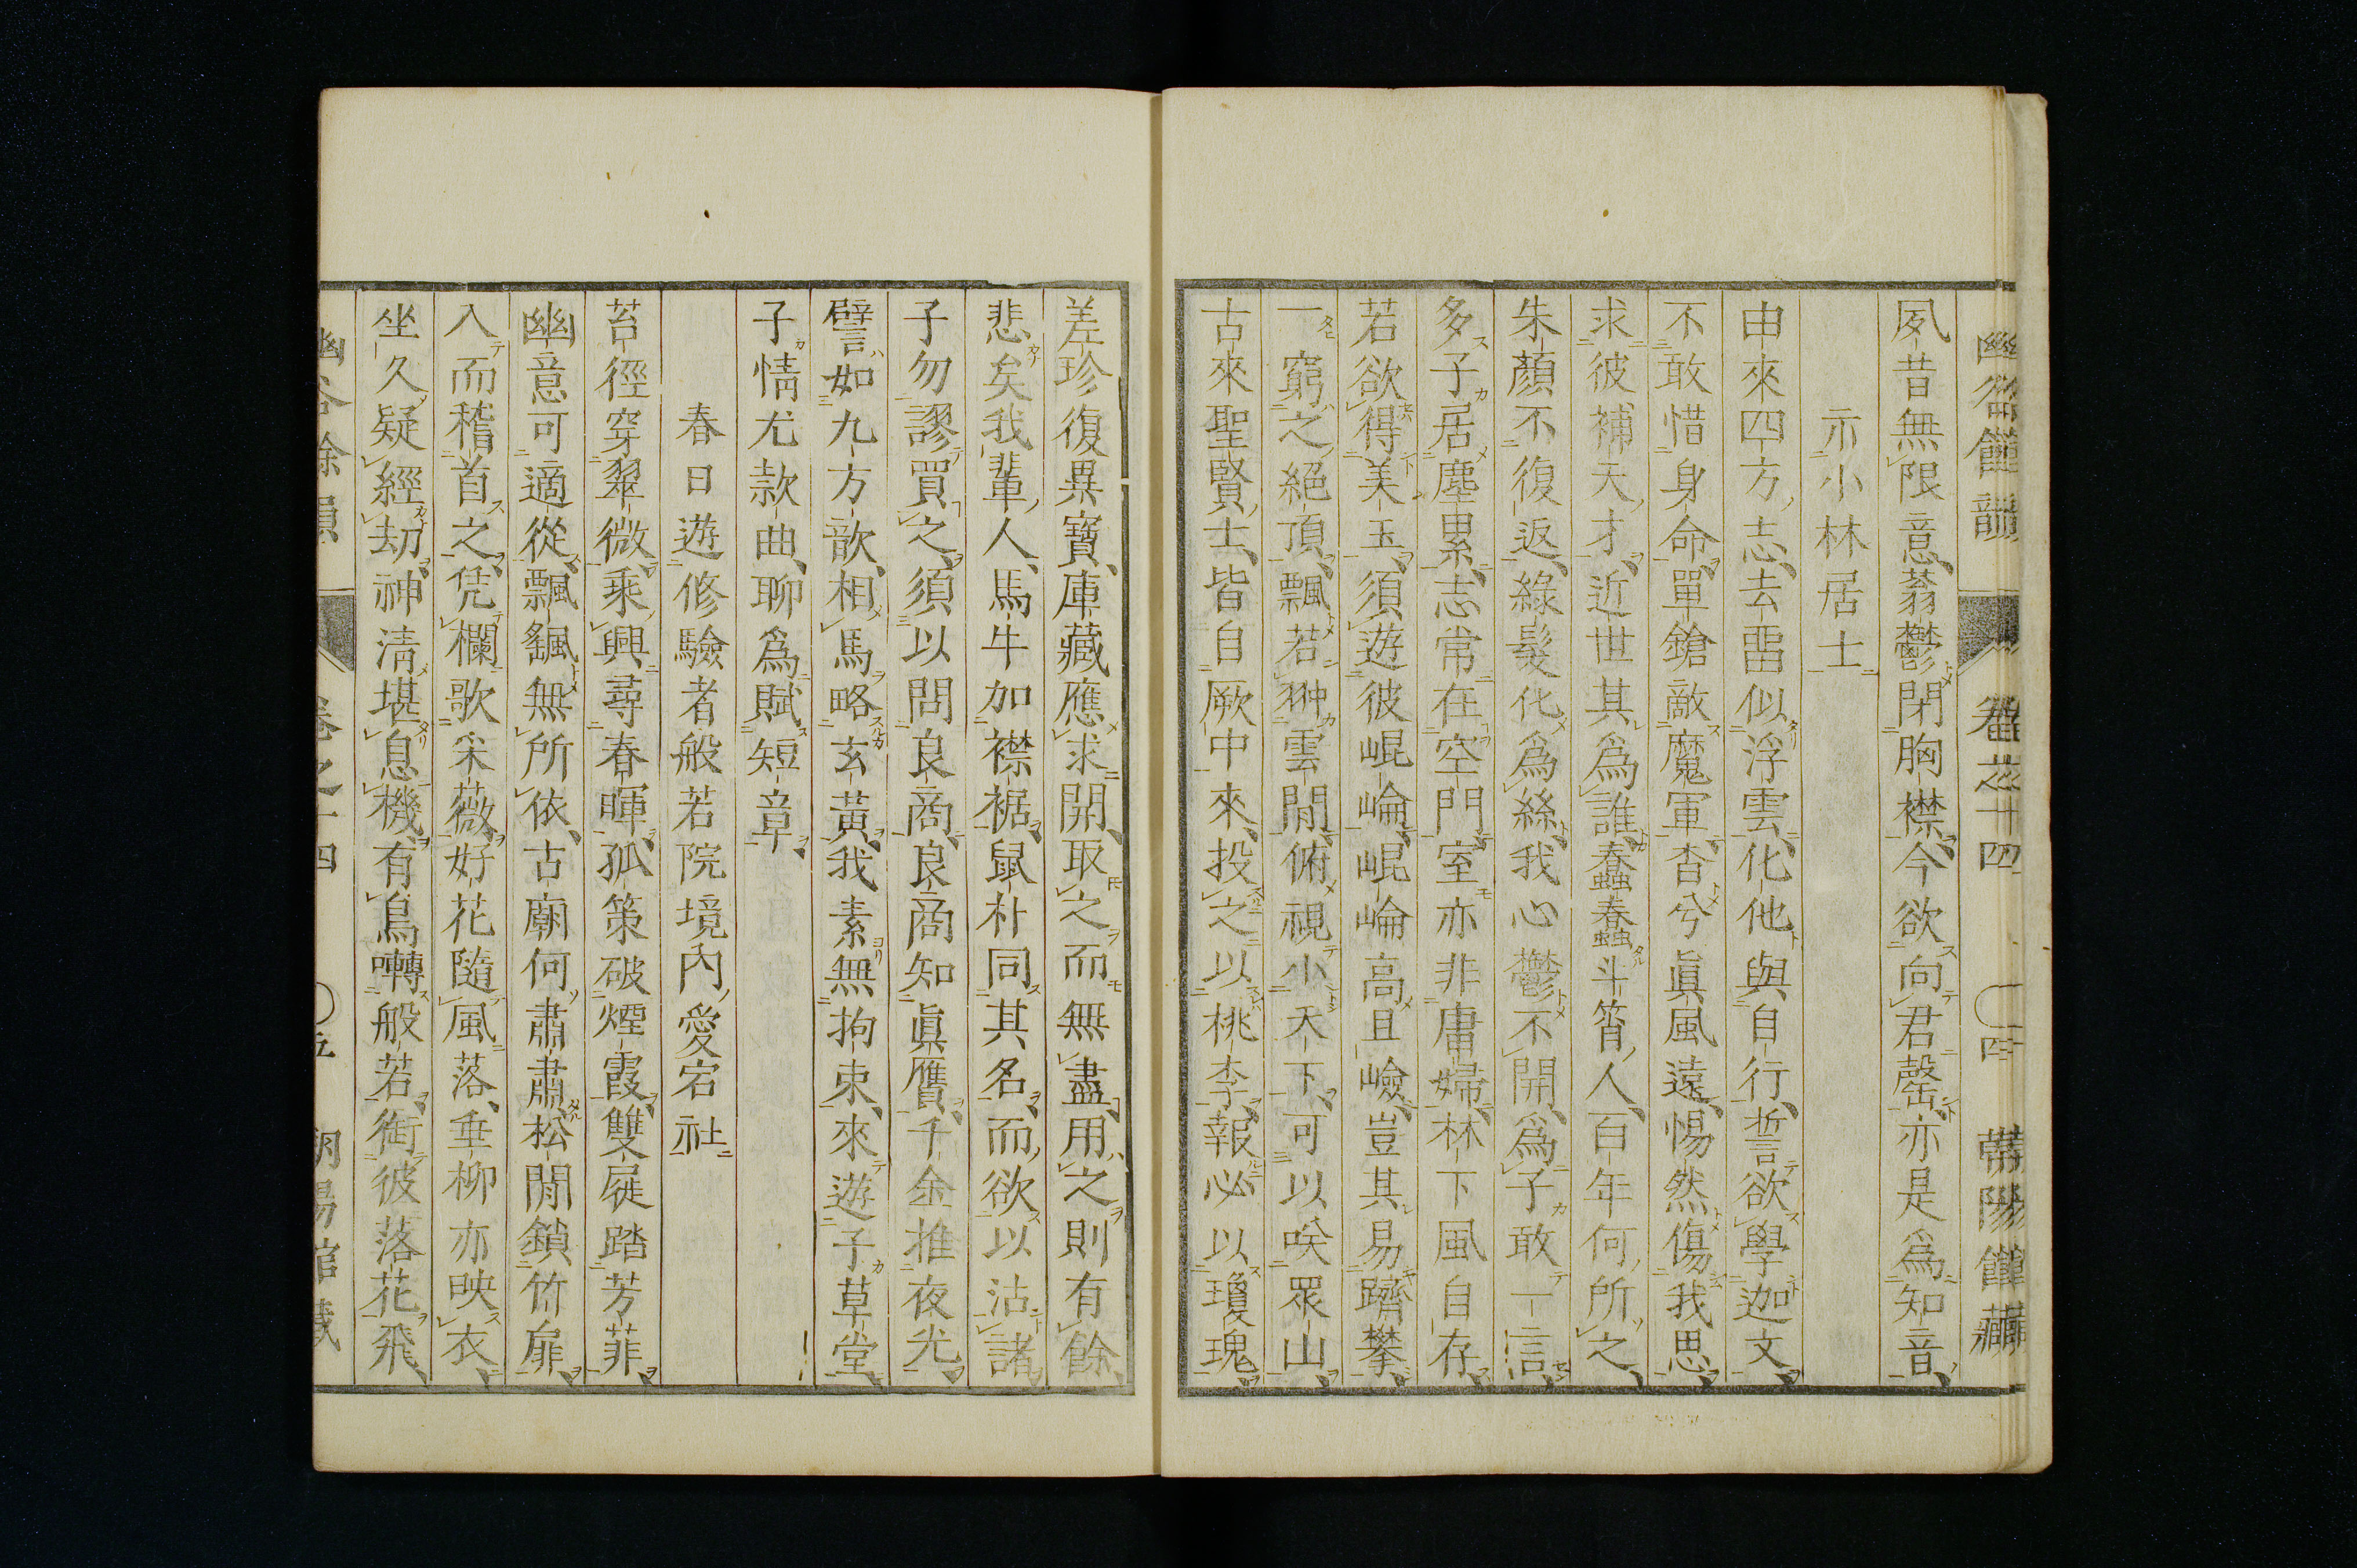 夙昔無限意蓊鬱閉胸襟今欲向君罄亦是爲知音
示小林居士
由來四方志去畱似浮雲化他與自行誓欲學迦文
不敢惜身命單鎗敵魔軍杳兮眞風遠惕然傷我思
求彼補天才近世其爲誰蠢蠢斗筲人百年何所之
朱顏不復返綠髮化爲絲我心鬱不開爲子敢一言
多子居塵累志常在空門室亦非庸婦林下風自存
若欲得美玉須遊彼崐崘崐崘高且嶮豈其易躋攀
一窮之絕頂飄若翀雲間俯視小天下可以咲眾山
古來聖賢士皆自厥中來投之以桃李報必以瓊瑰
差珍復異寶庫藏應求開取之而無盡用之則有餘
悲矣我輩人馬牛加襟裾鼠朴同其名而欲以沽諸
子勿謬買之須以問良商良商知眞贋千金推夜光
譬如九方歅相馬略玄黃我素無拘束來遊子草堂
子情尤款曲聊爲賦短章
春日遊修驗者般若院境內愛宕社
苔徑穿翠微乘興尋春暉孤策破煙霞雙屣踏芳菲
幽意可適從飄颻無所依古廟何肅肅松間鎖竹扉
入而稽首之凭欄歌采薇好花隨風落垂柳亦映衣
坐久疑經劫神淸堪息機有鳥囀般若銜彼落花飛
卷之十四 〇五 朝陽館藏